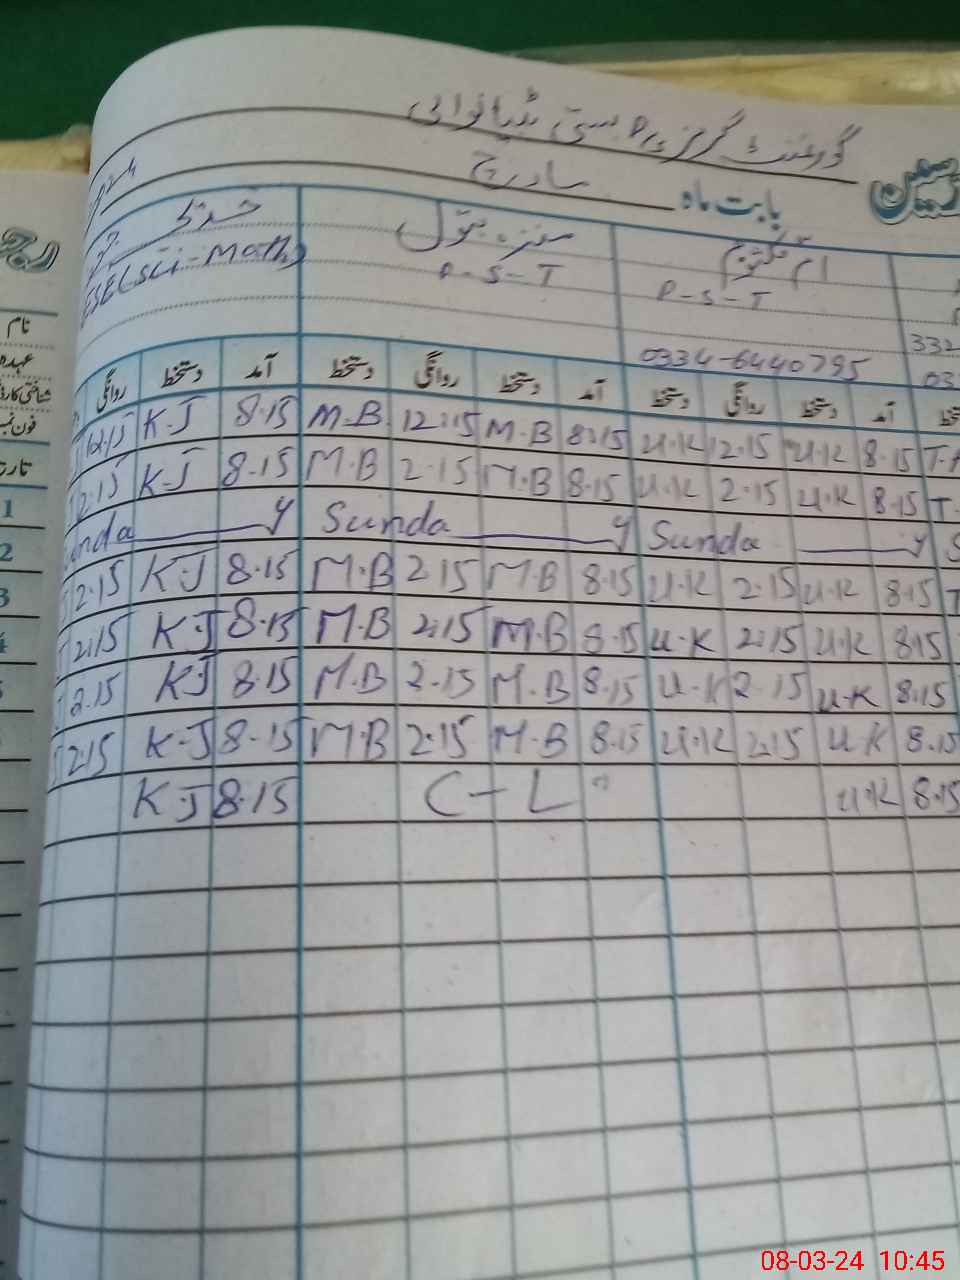 گورنمنٹ گرلز
بابت ماہ مارچ
ام کلثوم
P-S-T
0334-6440795
332
03
P-S-T
ESE(Sci-Math)
نام
عہدہ
آمد دستخط روانگی دستخط آمد دستخط روانگی دستخط آمد دستخط روانگی
K-J 8.15 M.B 12:15 M.B 8:15 U.K 12.15 U.K 8.15
2.15 K-J 8.15 M.B 2.15 M.B 8.15 U.K 2.15 U.K 8.15 T.
nda y Sunda y Sunda y S
2.15 K-J 8.15 M.B 2.15 M.B 8.15 U.K 2.15 U.K 8.15 T
2:15 K.J 8.15 M.B 2:15 M.B 8.15 U.K 2:15 U.K 8.15
2.15 KJ 8.15 M.B 2.15 M.B 8.15 U.K 2.15 U.K 8.15
2:15 K-J 8.15 M.B 2.15 M.B 8.15 U.K 2:15 U.K 8.15
K.J 8.15 C-L U.K 8.15
1
2
3
08-03-24 10:45